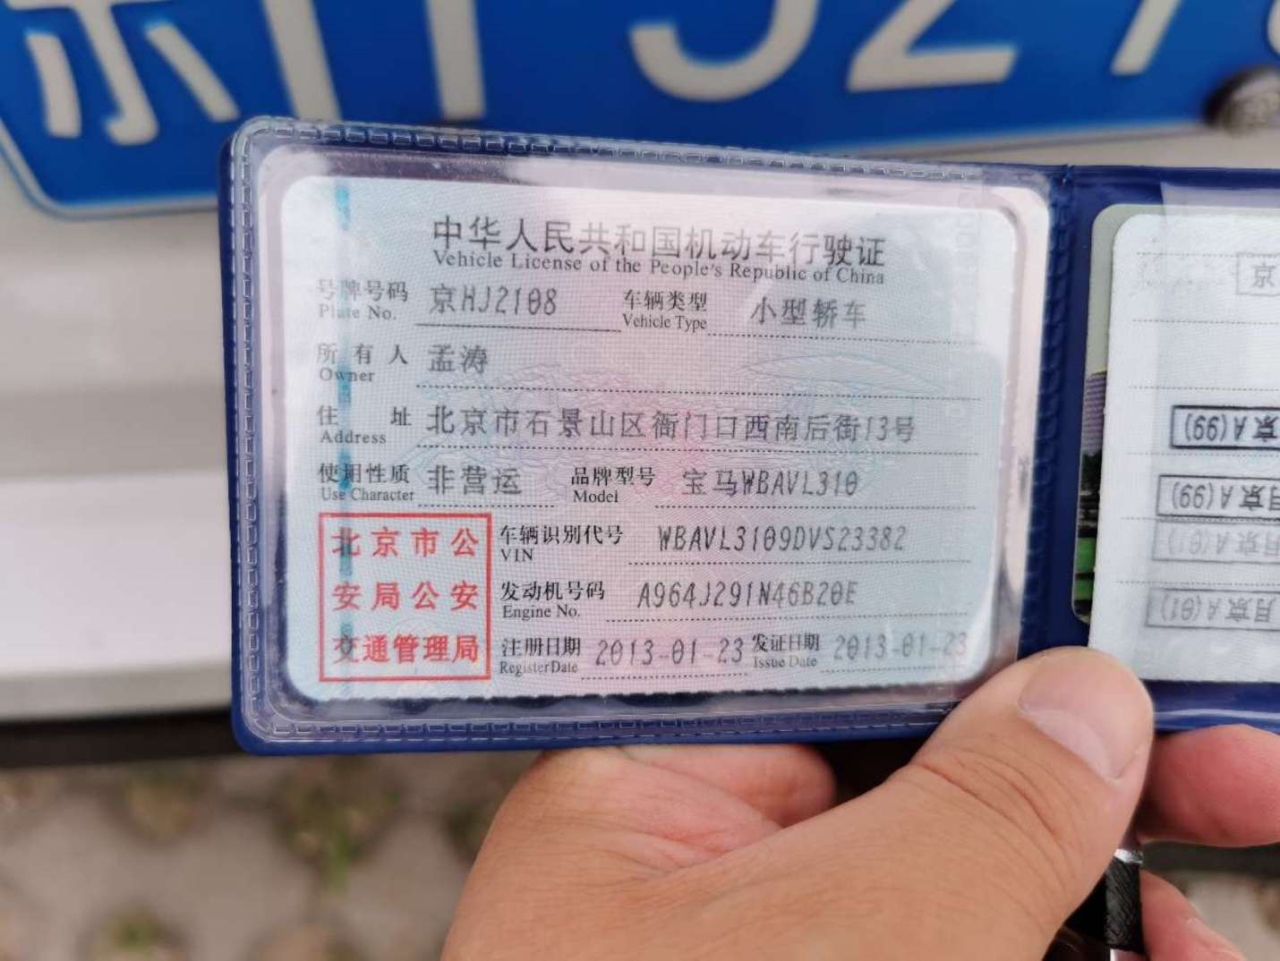 中华人民共和国机动车行驶证
Vehicle License of the People's Republic of China
号牌号码 京HJ2108 车辆类型 小型轿车
Plate No. Vehicle Type
所有人 孟涛
Owner
住址 北京市石景山区衙门口西南后街13号
Address
使用性质 非营运 品牌型号 宝马WBAVL310
Use Character Model
北京市公
安局公安
交通管理局
车辆识别代号 WBAVL3109DVS23382
VIN
发动机号码 A964J291N46B20E
Engine No.
注册日期 2013-01-23 发证日期 2013-01-23
Register Date Issue Date
京